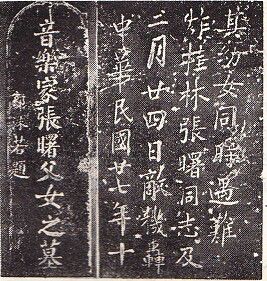 音樂家張曙父女之墓
郭沫若題
中華民國廿七年十
二月廿四日敵機轟
炸桂林張曙同志及
其幼女同時遇難